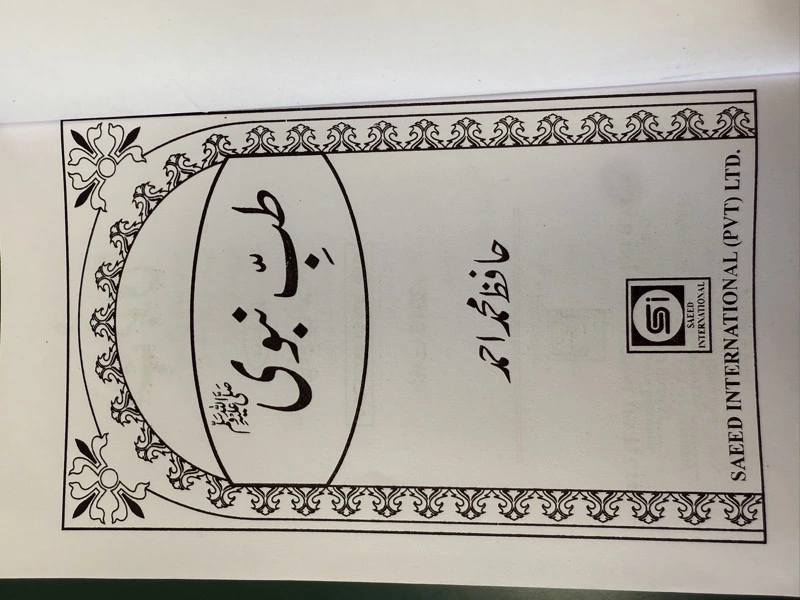 طبِّ نبوی ﷺ
حافظ محمد احمد
Si
SAEED
INTERNATIONAL
SAEED INTERNATIONAL (PVT) LTD.